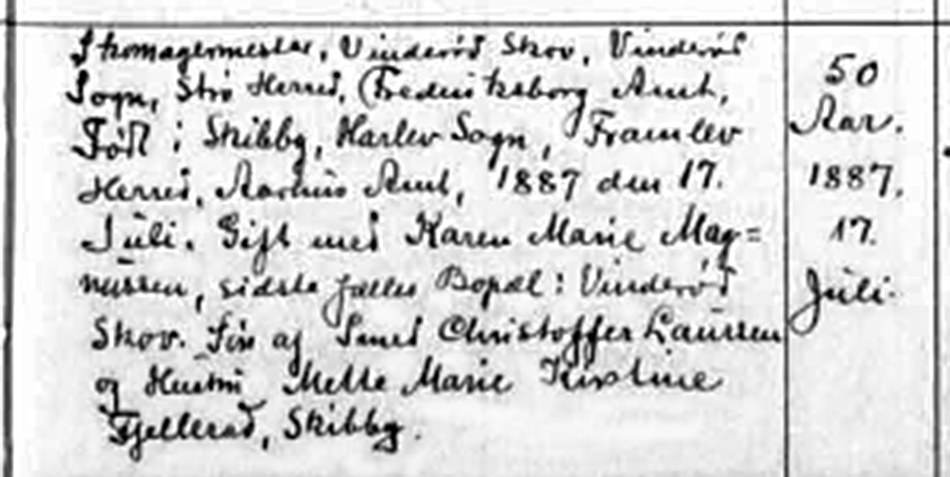 Skomagermester, Vinderød Skov, Vinderød
Sogn, Strø Herred, Frederiksborg Amt,
Född i Skibby, Harlev Sogn, Framlev
Herred, Aarhus Amt, 1887 den 17.
Juli. Gift med Karen Marie Mag=
nussen, sidste fælles Bopæl: Vinderød
Skov. Søn af Smed Christoffer Laursen
og Hustru Mette Marie Kirstine
Fjellerad, Skibby.
50
Aar.
1887,
17.
Juli.